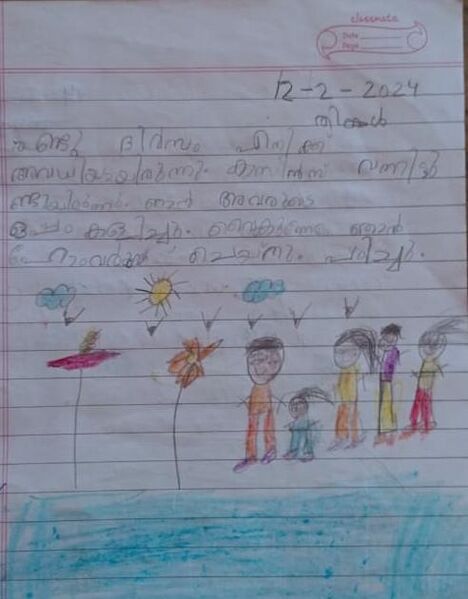 classmate
Date
Page
12-2-2024
തിങ്കൾ
രണ്ടു ദിവസം എനിക്ക്
അവധിയായിരുന്നു. കസിൻസ് വന്നിട്ടു
ണ്ടായിരുന്നു. ഞാൻ അവരുടെ
ഒപ്പം കളിച്ചു. വൈകുന്നേരം ഞാൻ
ഹോംവർക്ക് ചെയ്തു. പഠിച്ചു.